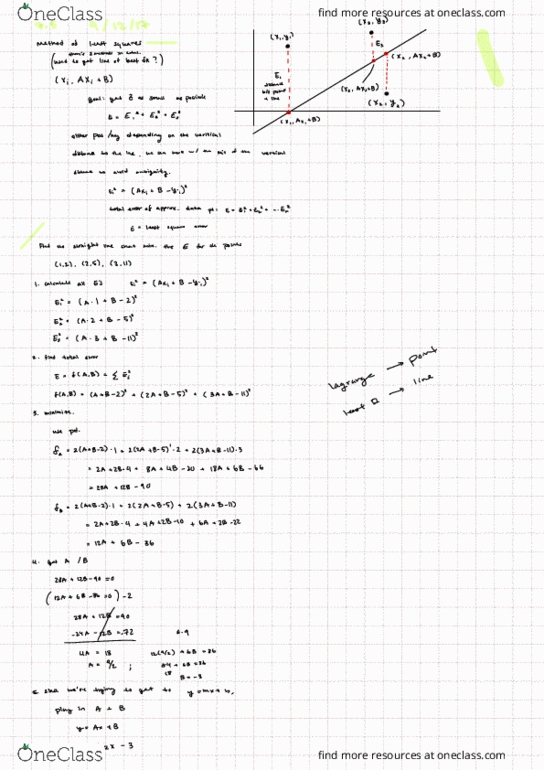 OneClass
find more resources at oneclass.com
7.5 9/12/17
Method of least squares
(used to get line of best fit?)
(xᵢ, Axᵢ + B)
goal: get E as small as possible
E = E₁² + E₂² + E₃²
either pos/neg depending on the vertical
distance to the line, we can work w/ the of the vertical
distance to avoid ambiguity.
E₁² = (Ax₁ + B - y₁)²
total error of approx. data pt. E = E₁² + E₂² + ... Eₙ²
E = least square error
(x₁, y₁)
(x₃, y₃)
E₁
distance
b/t point
& line
E₃
(x₂, Ax₂ + B)
(x₃, Ax₃ + B)
(x₂, y₂)
(x₁, Ax₁ + B)
Find the straight line that min. the E for the points
(1,2), (2,5), (3,11)
1. calculate all Es E² = (Ax₁ + B - y₁)²
E₁² = (A·1 + B - 2)²
E₂² = (A·2 + B - 5)²
E₃² = (A·3 + B - 11)²
2. find total error
E = f(A,B) = Σ Eᵢ²
f(A,B) = (A+B-2)² + (2A+B-5)² + (3A+B-11)²
3. minimize.
lagrange → point
least □ → line
= 2A+2B-4 + 8A+4B-20 + 18A+6B-66
= 28A + 12B - 90
= 2A+2B-4 + 4A+2B-10 + 6A+2B-22
= 12A + 6B - 36
4. get A / B
28A + 12B - 90 = 0
(12A + 6B - 36 = 0) -2
28A + 12B = 90
-24A - 12B = -72
4A = 18
A = 9/2 ;
12(9/2) + 6B = 36
54 + 6B = 36
B = -3
since we're trying to get to y = mx + b,
plug in A + B
y = Ax + B
OneClass
find more resources at oneclass.com